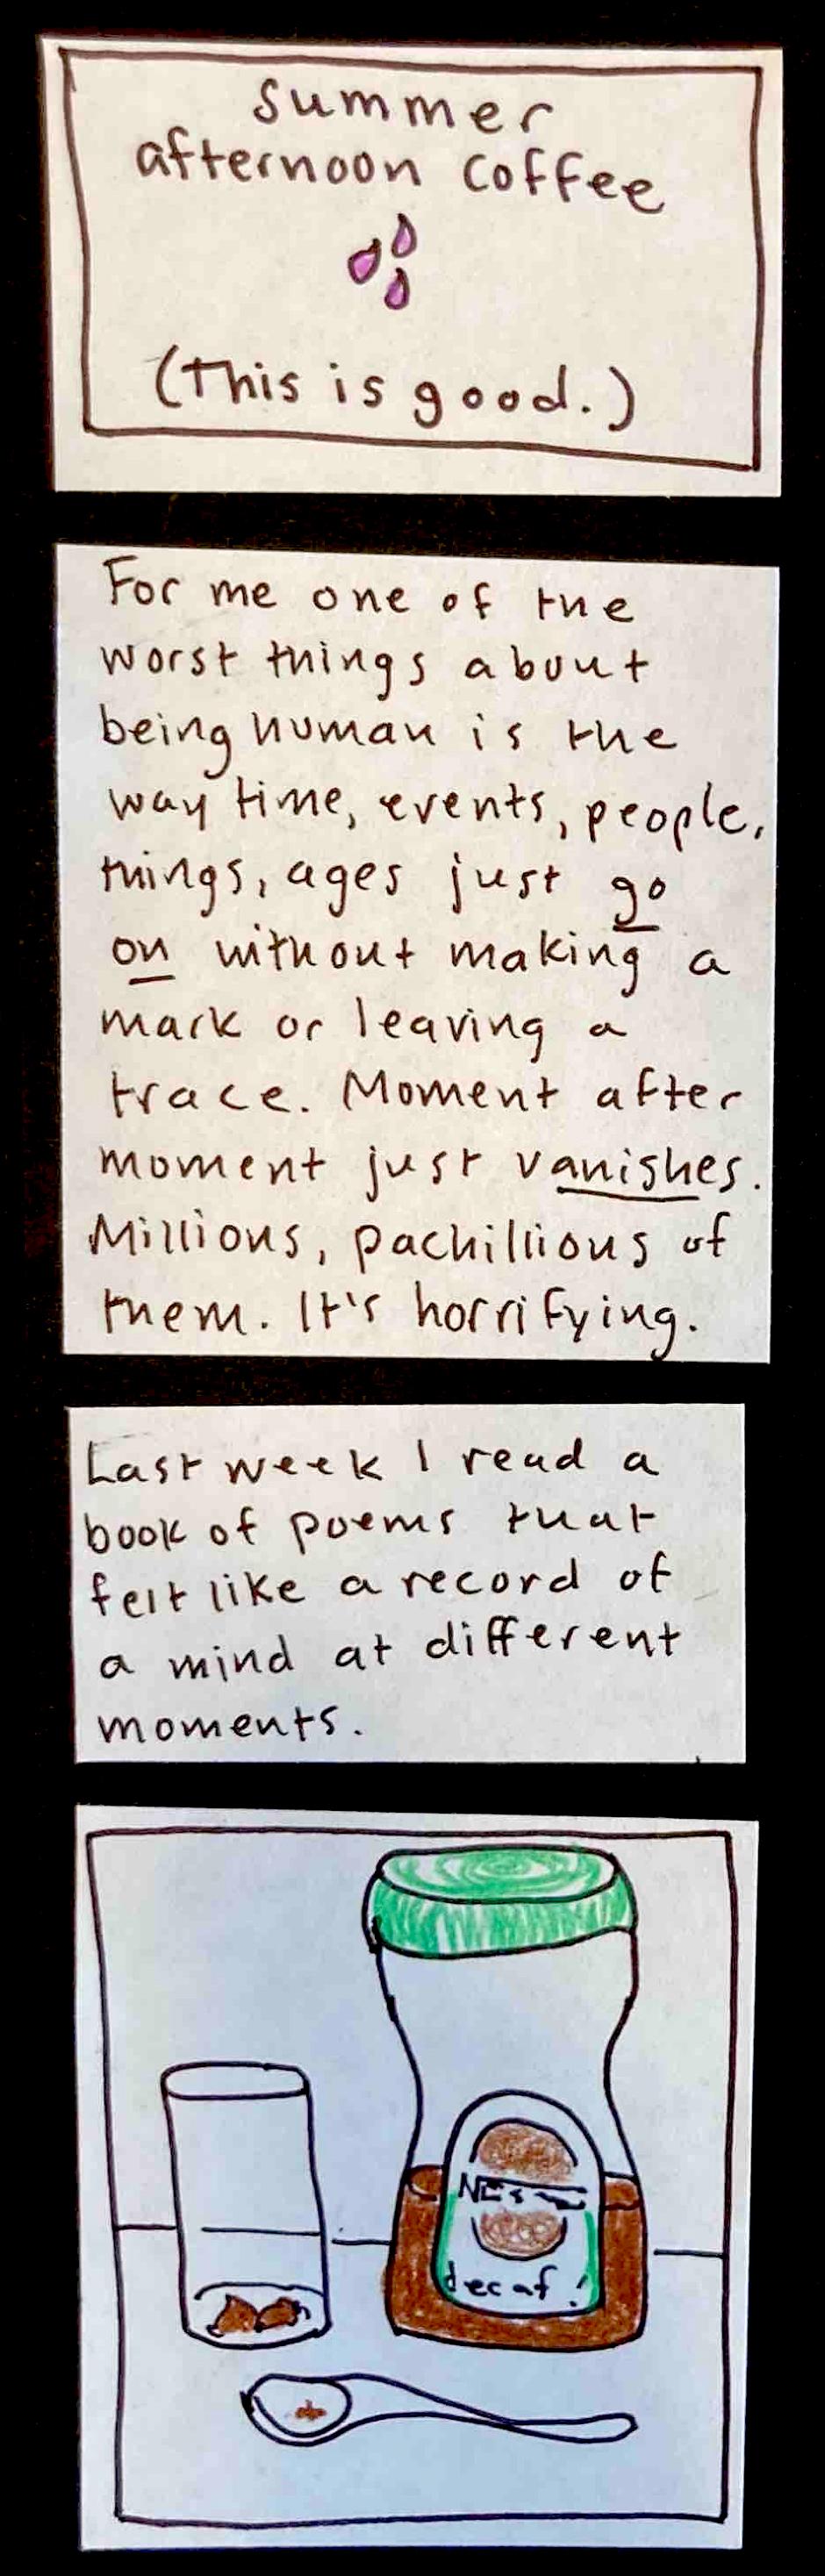 summer
afternoon coffee
(This is good.)
For me one of the
worst things about
being human is the
way time, events, people,
things, ages just go
on without making a
mark or leaving a
trace. Moment after
moment just vanishes.
Millions, pachillions of
them. It's horrifying.
Last week I read a
book of poems that
felt like a record of
a mind at different
moments.
decaf!